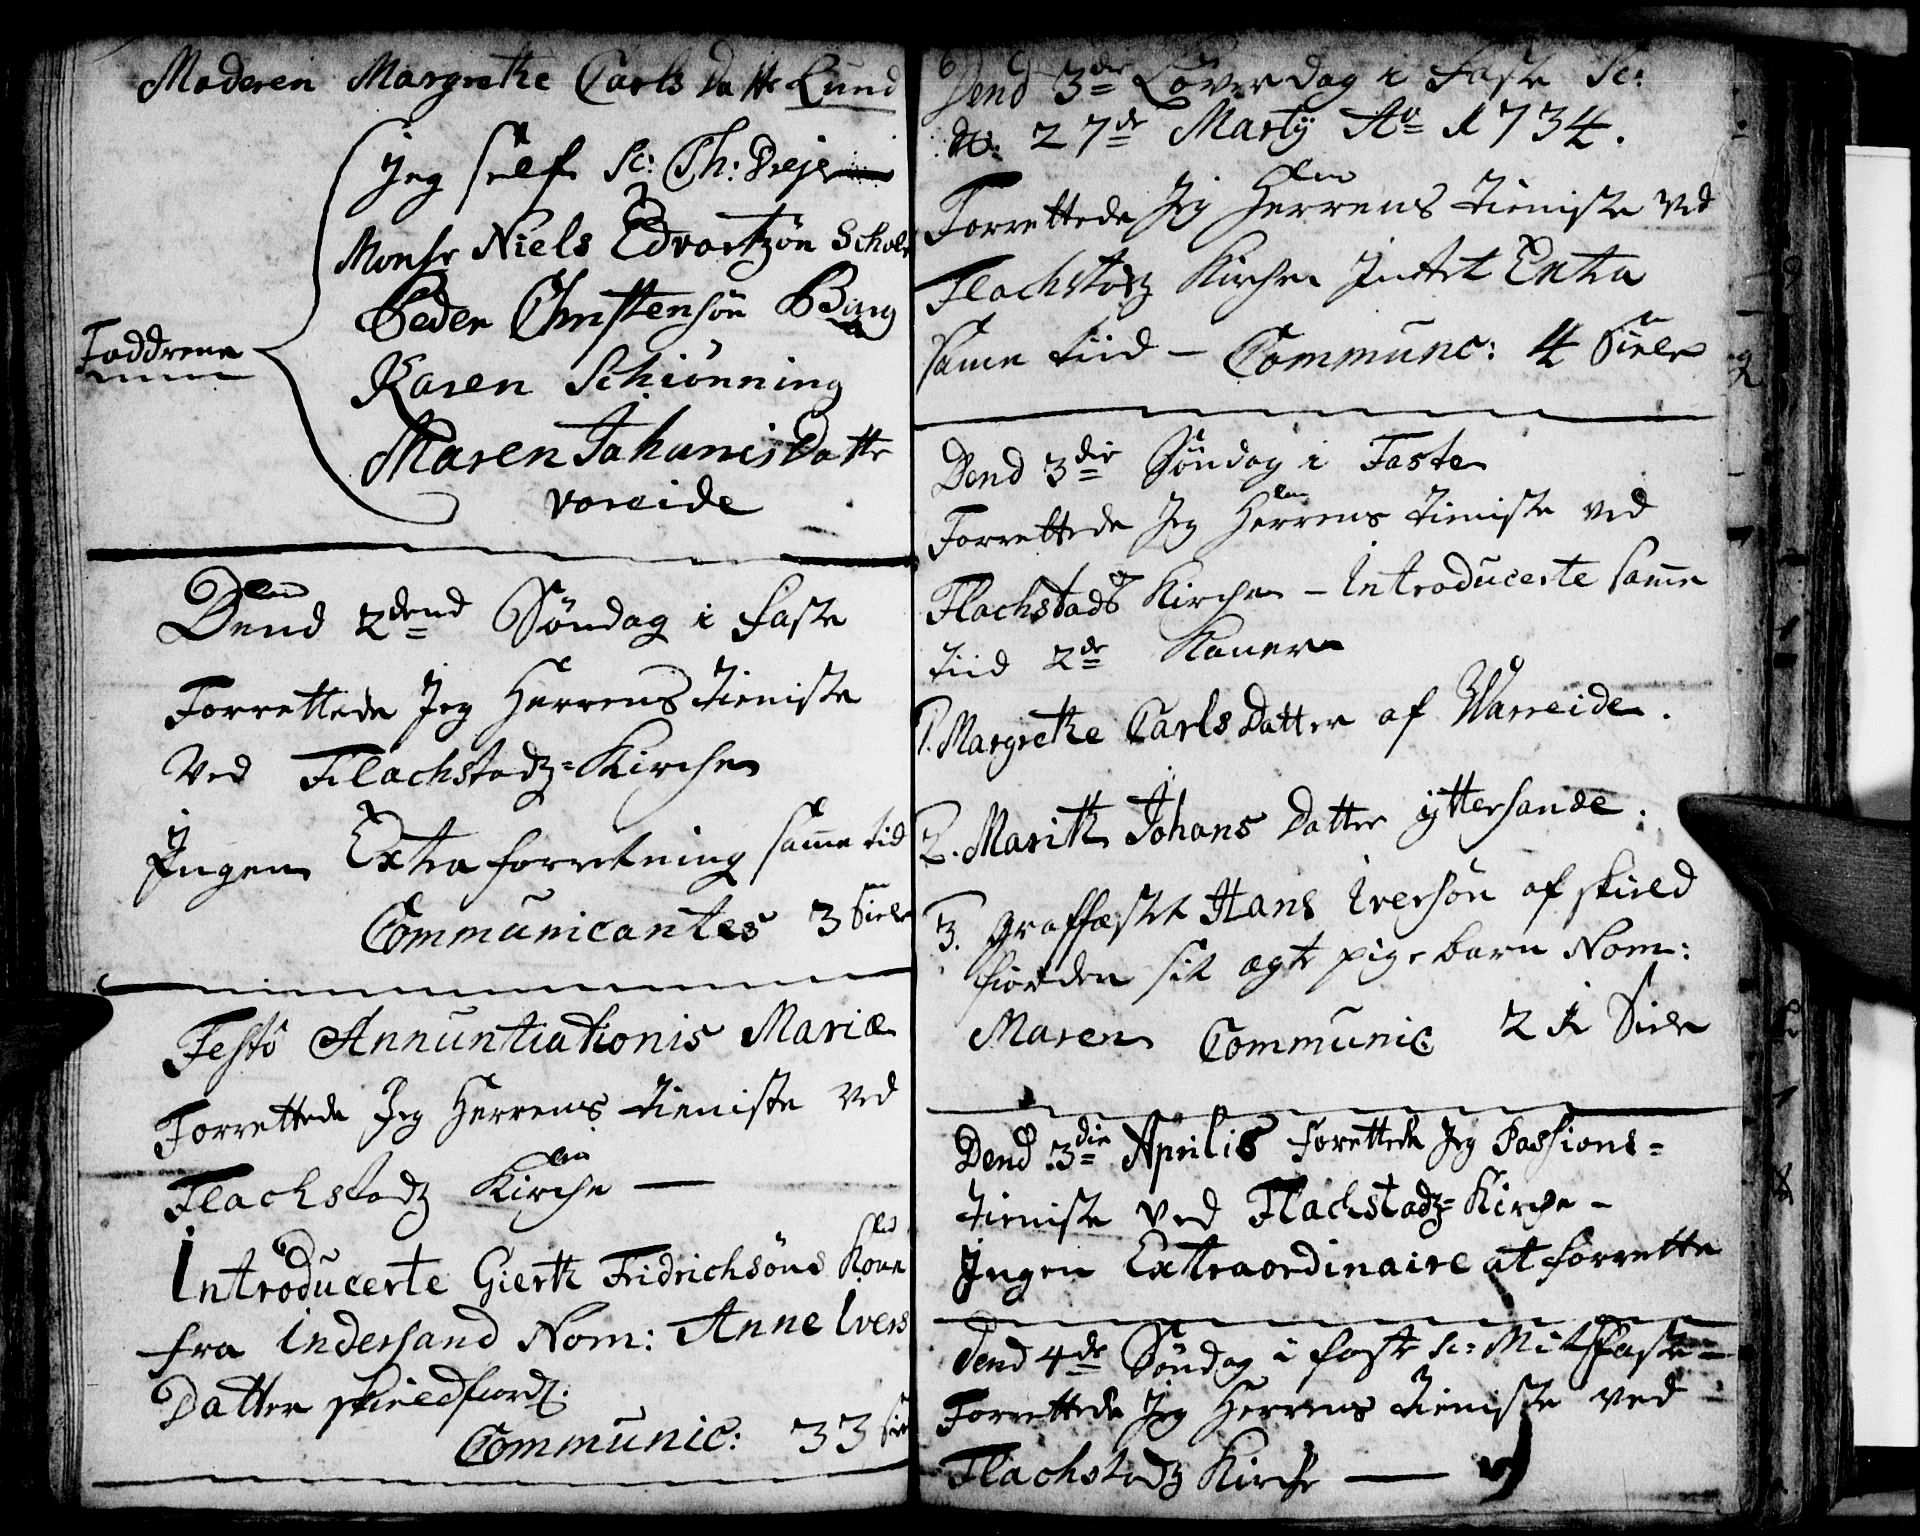 Moderen Margrethe Carls Datter Lund
Jeg self sc: Th: Deje
Monsr Niels Edvartzøn Schole
Peder Christensøn Bang
Faddrene
Karen Schiønning
Maren Johanis Datter
voreide
Dend 2dend Søndag i Faste
Forrettede Jeg Herrens Tieniste
Ved Flachstadz=Kirche
Ingen Extra forretning samme tid
Communicantes 3 Siele
Festo Annuntiationis Mariæ
Forrettede Jeg Herrens tieniste Ved
Flachstadz Kirche —
Introducerte Gierth Fridrichsøns Kone
fra Indersand Nom: Anne Ivers
Datter skieldfiord:
Communic: 33
Dend 3die Løverdag i Faste sc:
d. 27de Martij Ao 1734.
Forrettede Jeg Herrens Tieniste Ved
Flachstadz Kirche Intet Extra
same tiid — Communc: 4 Siele
Dend 3die Søndag i Faste
Forrettede Jeg Herrens tieniste ved
Flachstads Kirche — Introducerte samme
tiid 2de Koner
1. Margrethe Carls Datter af Wareide.
2. Marith Johans Datter yttersande.
3. graffæstet Hans Iversøn af skield
fiorden sit ægte pige barn Nom:
Maren Communic 21 Siele
Dend 3die Aprilis Forettede Jeg Passions=
tieniste ved Flachstadz=Kirche —
Ingen Extraordinaire at forrette
Dend 4de Søndag i faste sc: Mitfaste —
Forrettede Jeg Herrens tieniste ved
Flachstadz Kirche —